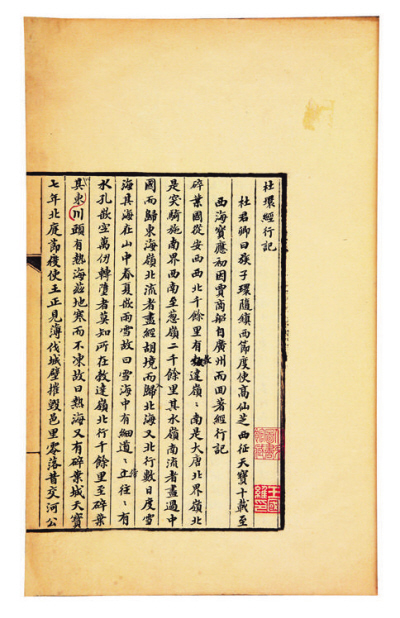 杜環經行記
杜君卿曰族子環隨鎮西節度使高仙芝西征天寶十載至
西海寶應初因賈商船自廣州而回著經行記
碎葉國從安西西北千餘里有達嶺〻南是大唐北界嶺北
是突騎施南界西南至葱嶺二千餘里其水嶺南流者盡過中
國而歸東海嶺北流者盡經胡境而歸北海又北行數日度雪
海其海在山中春夏故雨雪故曰雪海中有細道〻往〻有
水孔嵌空萬仞轉墮者莫知所在達嶺北行千餘里至碎葉
其東川頭有熱海茲地寒而不凍故曰熱海又有碎葉城天寶
七年北庭節度使王正見薄伐城壁摧毀邑里零落昔交河公
王國維